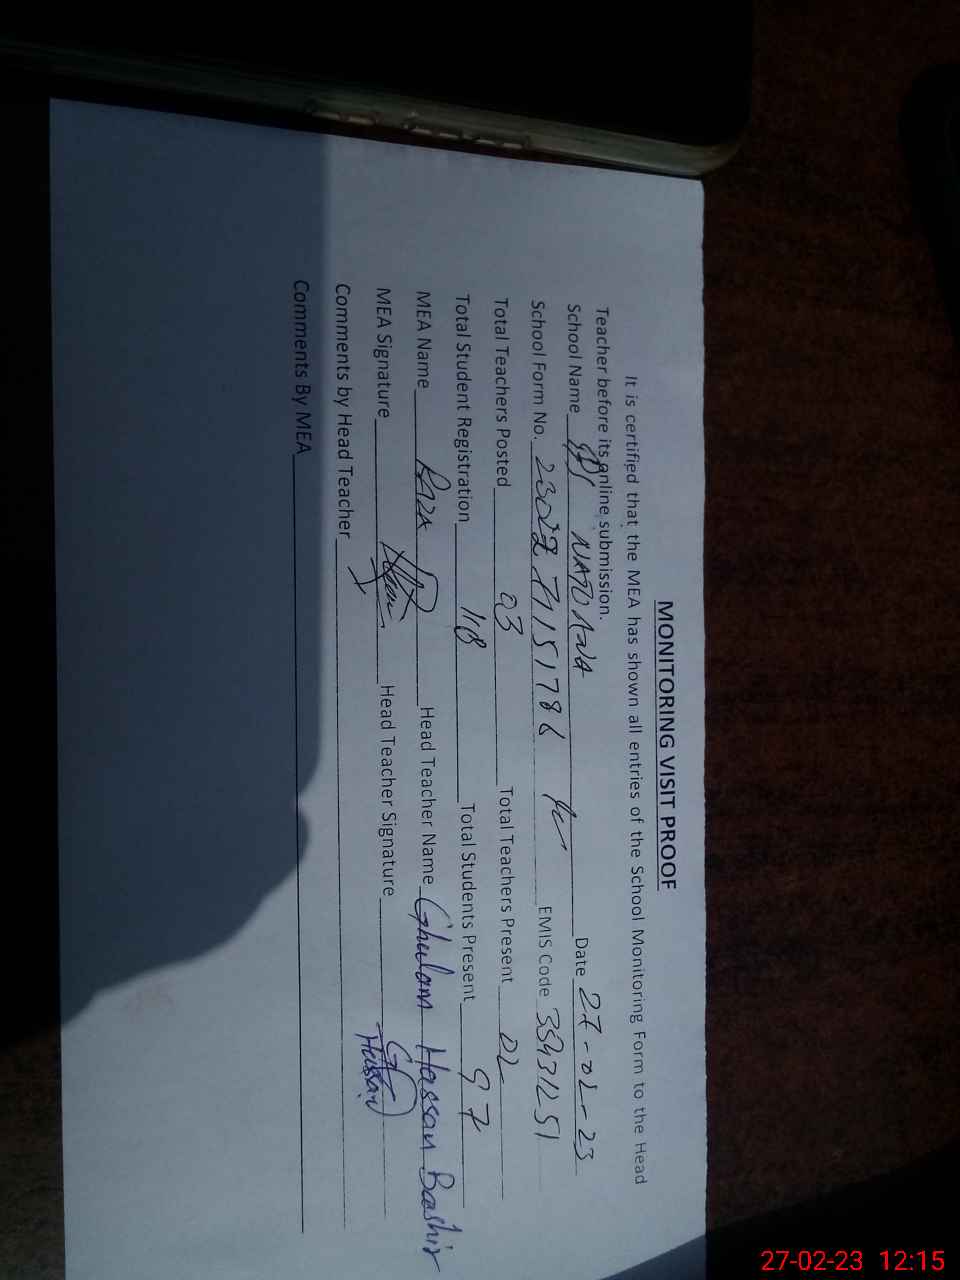 MONITORING VISIT PROOF
It is certified that the MEA has shown all entries of the School Monitoring Form to the Head
Teacher before its online submission.
School Name Date 27-02-23
School Form No. EMIS Code
Total Teachers Posted 03 Total Teachers Present 02
Total Student Registration 118 Total Students Present 97
MEA Name RAZA Head Teacher Name Ghulam Hassan Bashir
MEA Signature Head Teacher Signature Hassan
Comments by Head Teacher
Comments By MEA
27-02-23 12:15